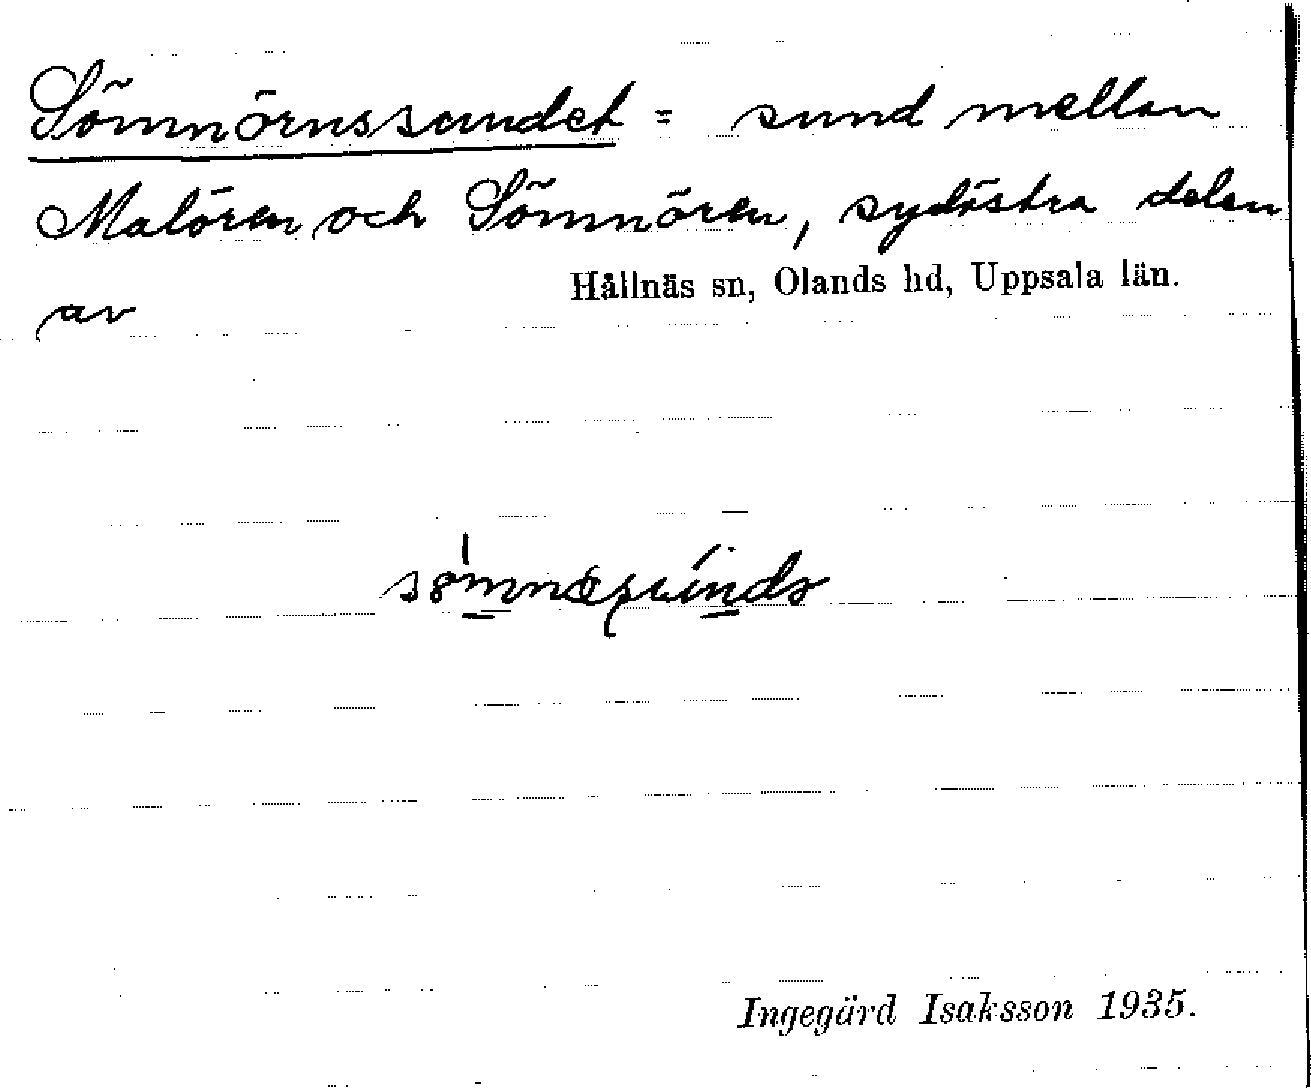 Sömnörnssundet = sund mellan
Malören och Sömnören, sydöstra delen
av Hållnäs sn, Olands hd, Uppsala län.
Ingegärd Isaksson 1935.